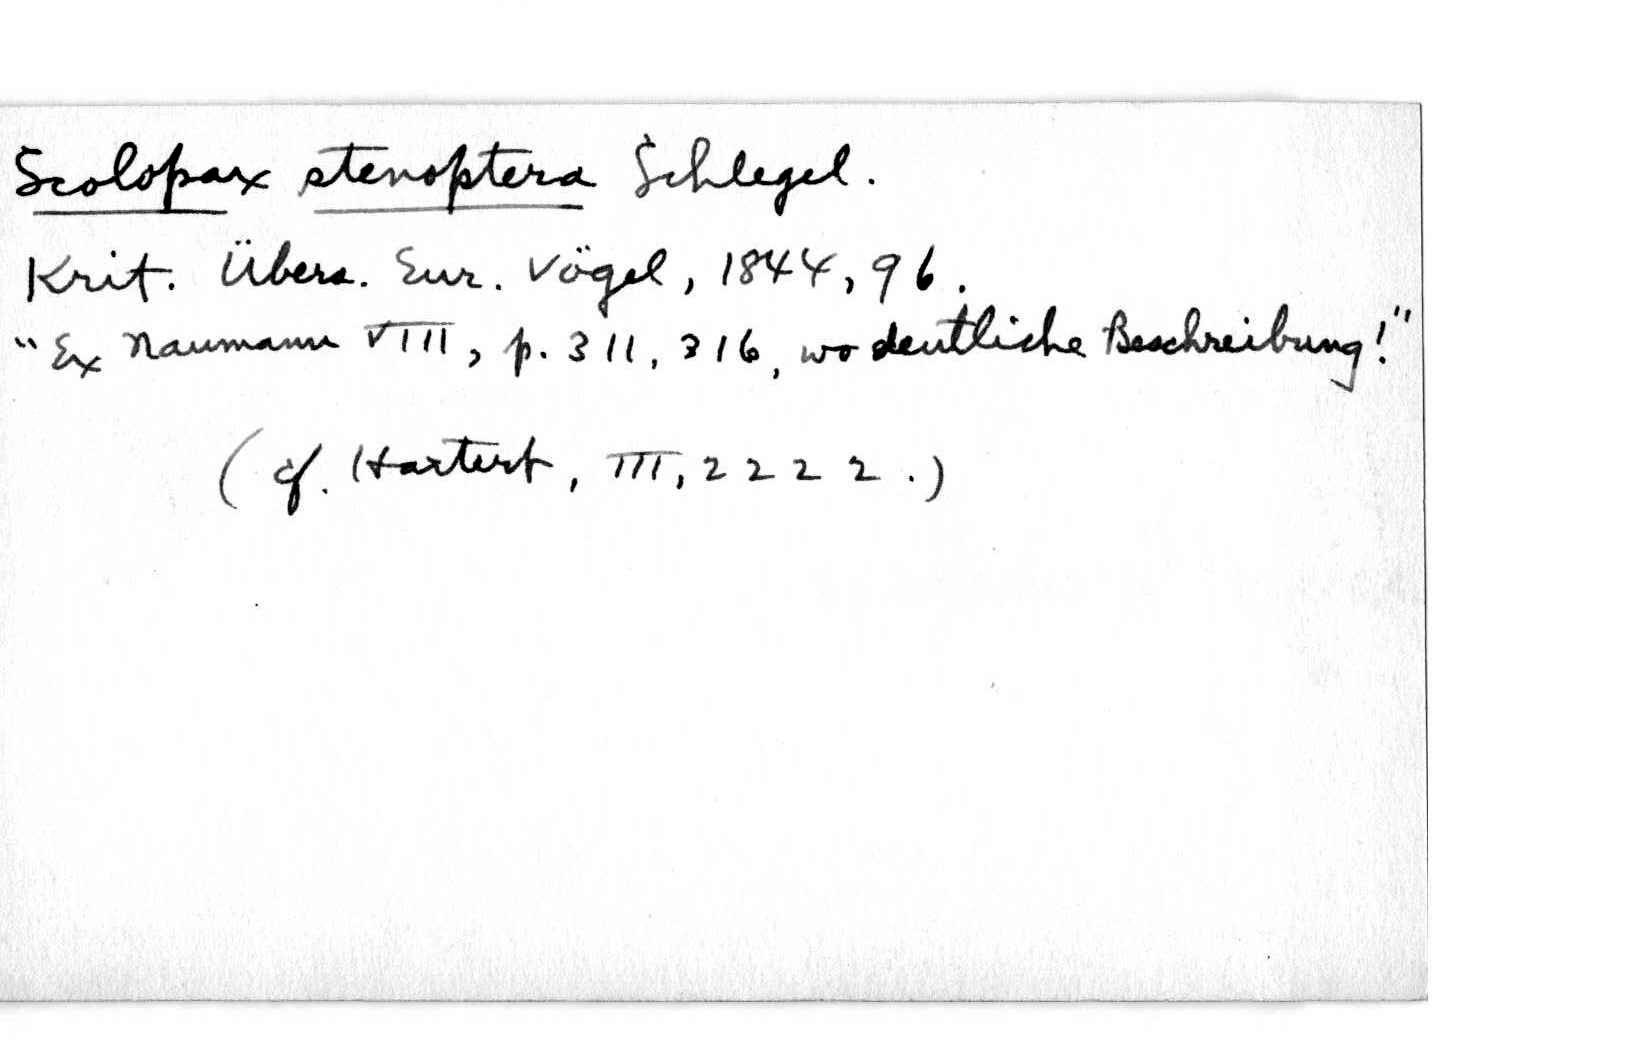 Scolopax stenoptera Schlegel.
Krit. Übers. Eur. Vögel, 1844, 96.
"Ex Naumann VIII, p. 311, 316, wo deutliche Beschreibung!"
(cf. Hartert, III, 2222.)